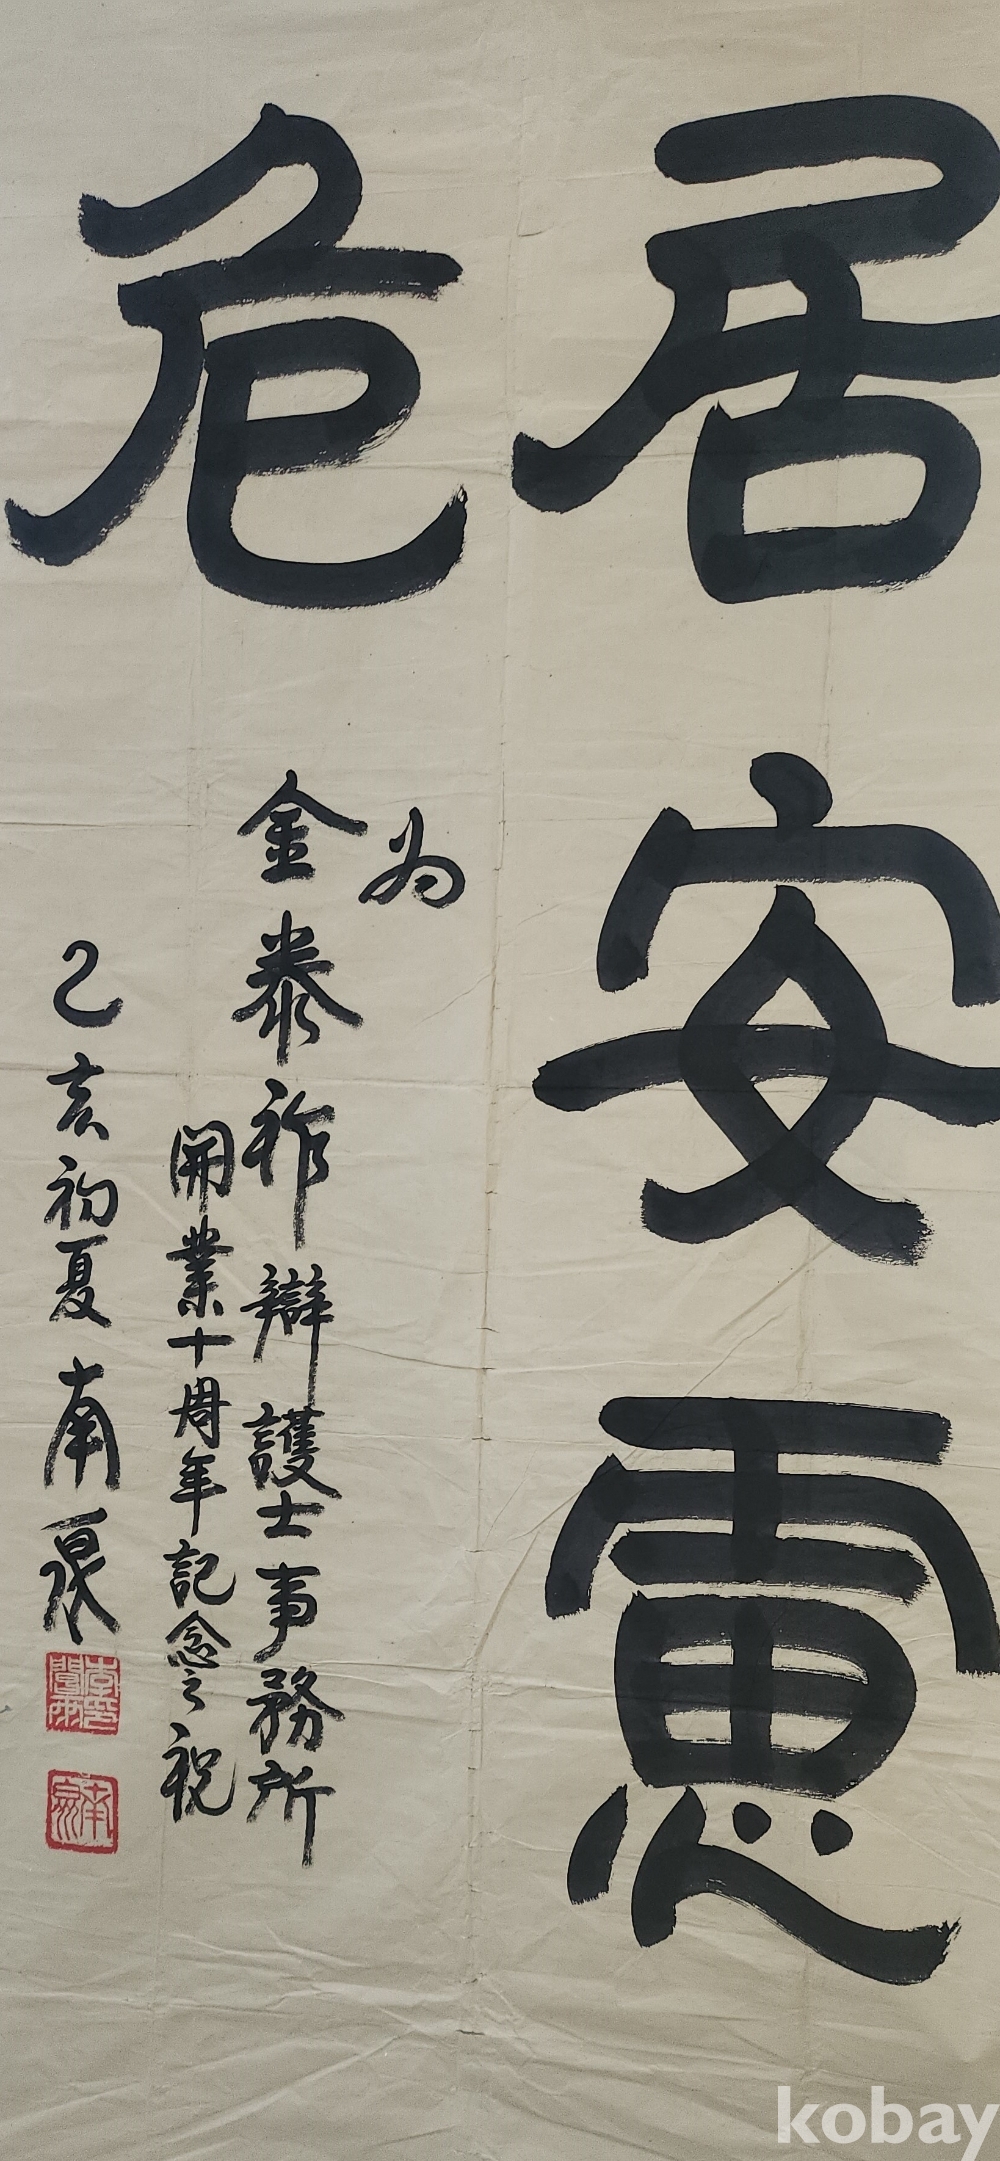 居安慮
危
为
金泰祚辯護士事務所
開業十周年記念之祝
乙亥初夏 南
kobay